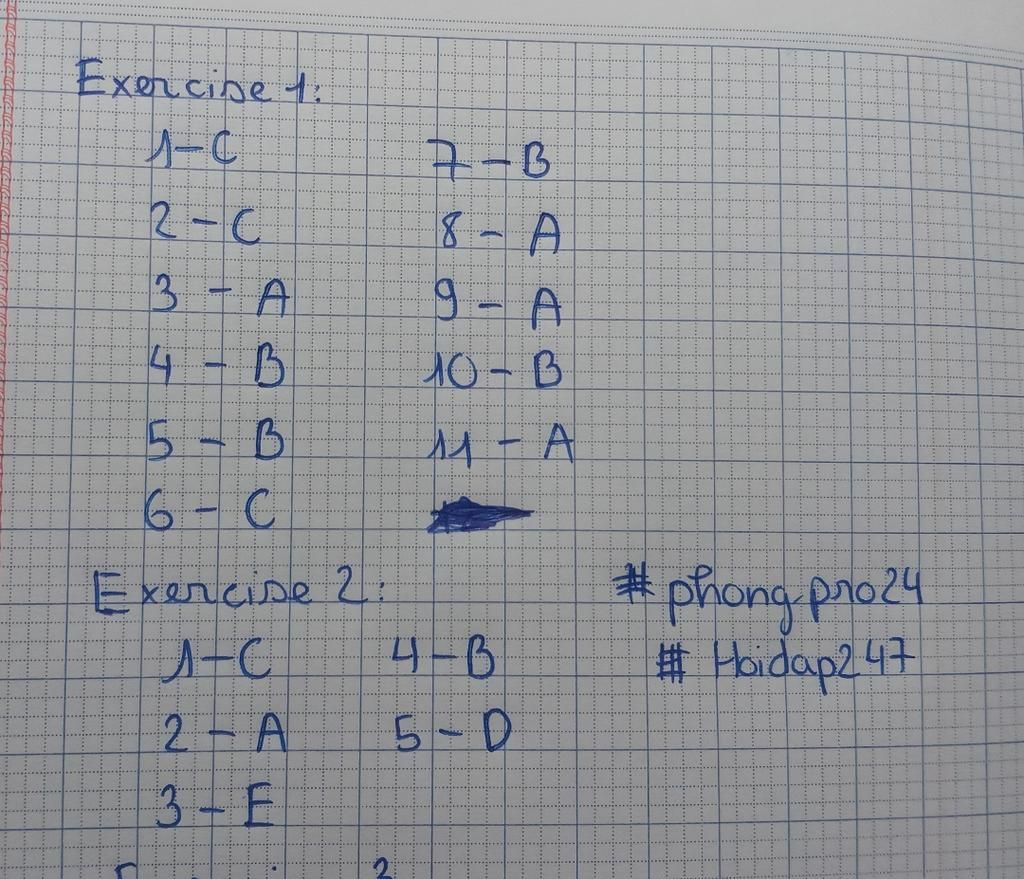 Exercise 1:
1-C
2-C
3-A
4-B
5-B
6-C
7-B
8-A
9-A
10-B
11-A
Exercise 2:
1-C
2-A
3-E
4-B
5-D
# phongpro24
# Hoidap247